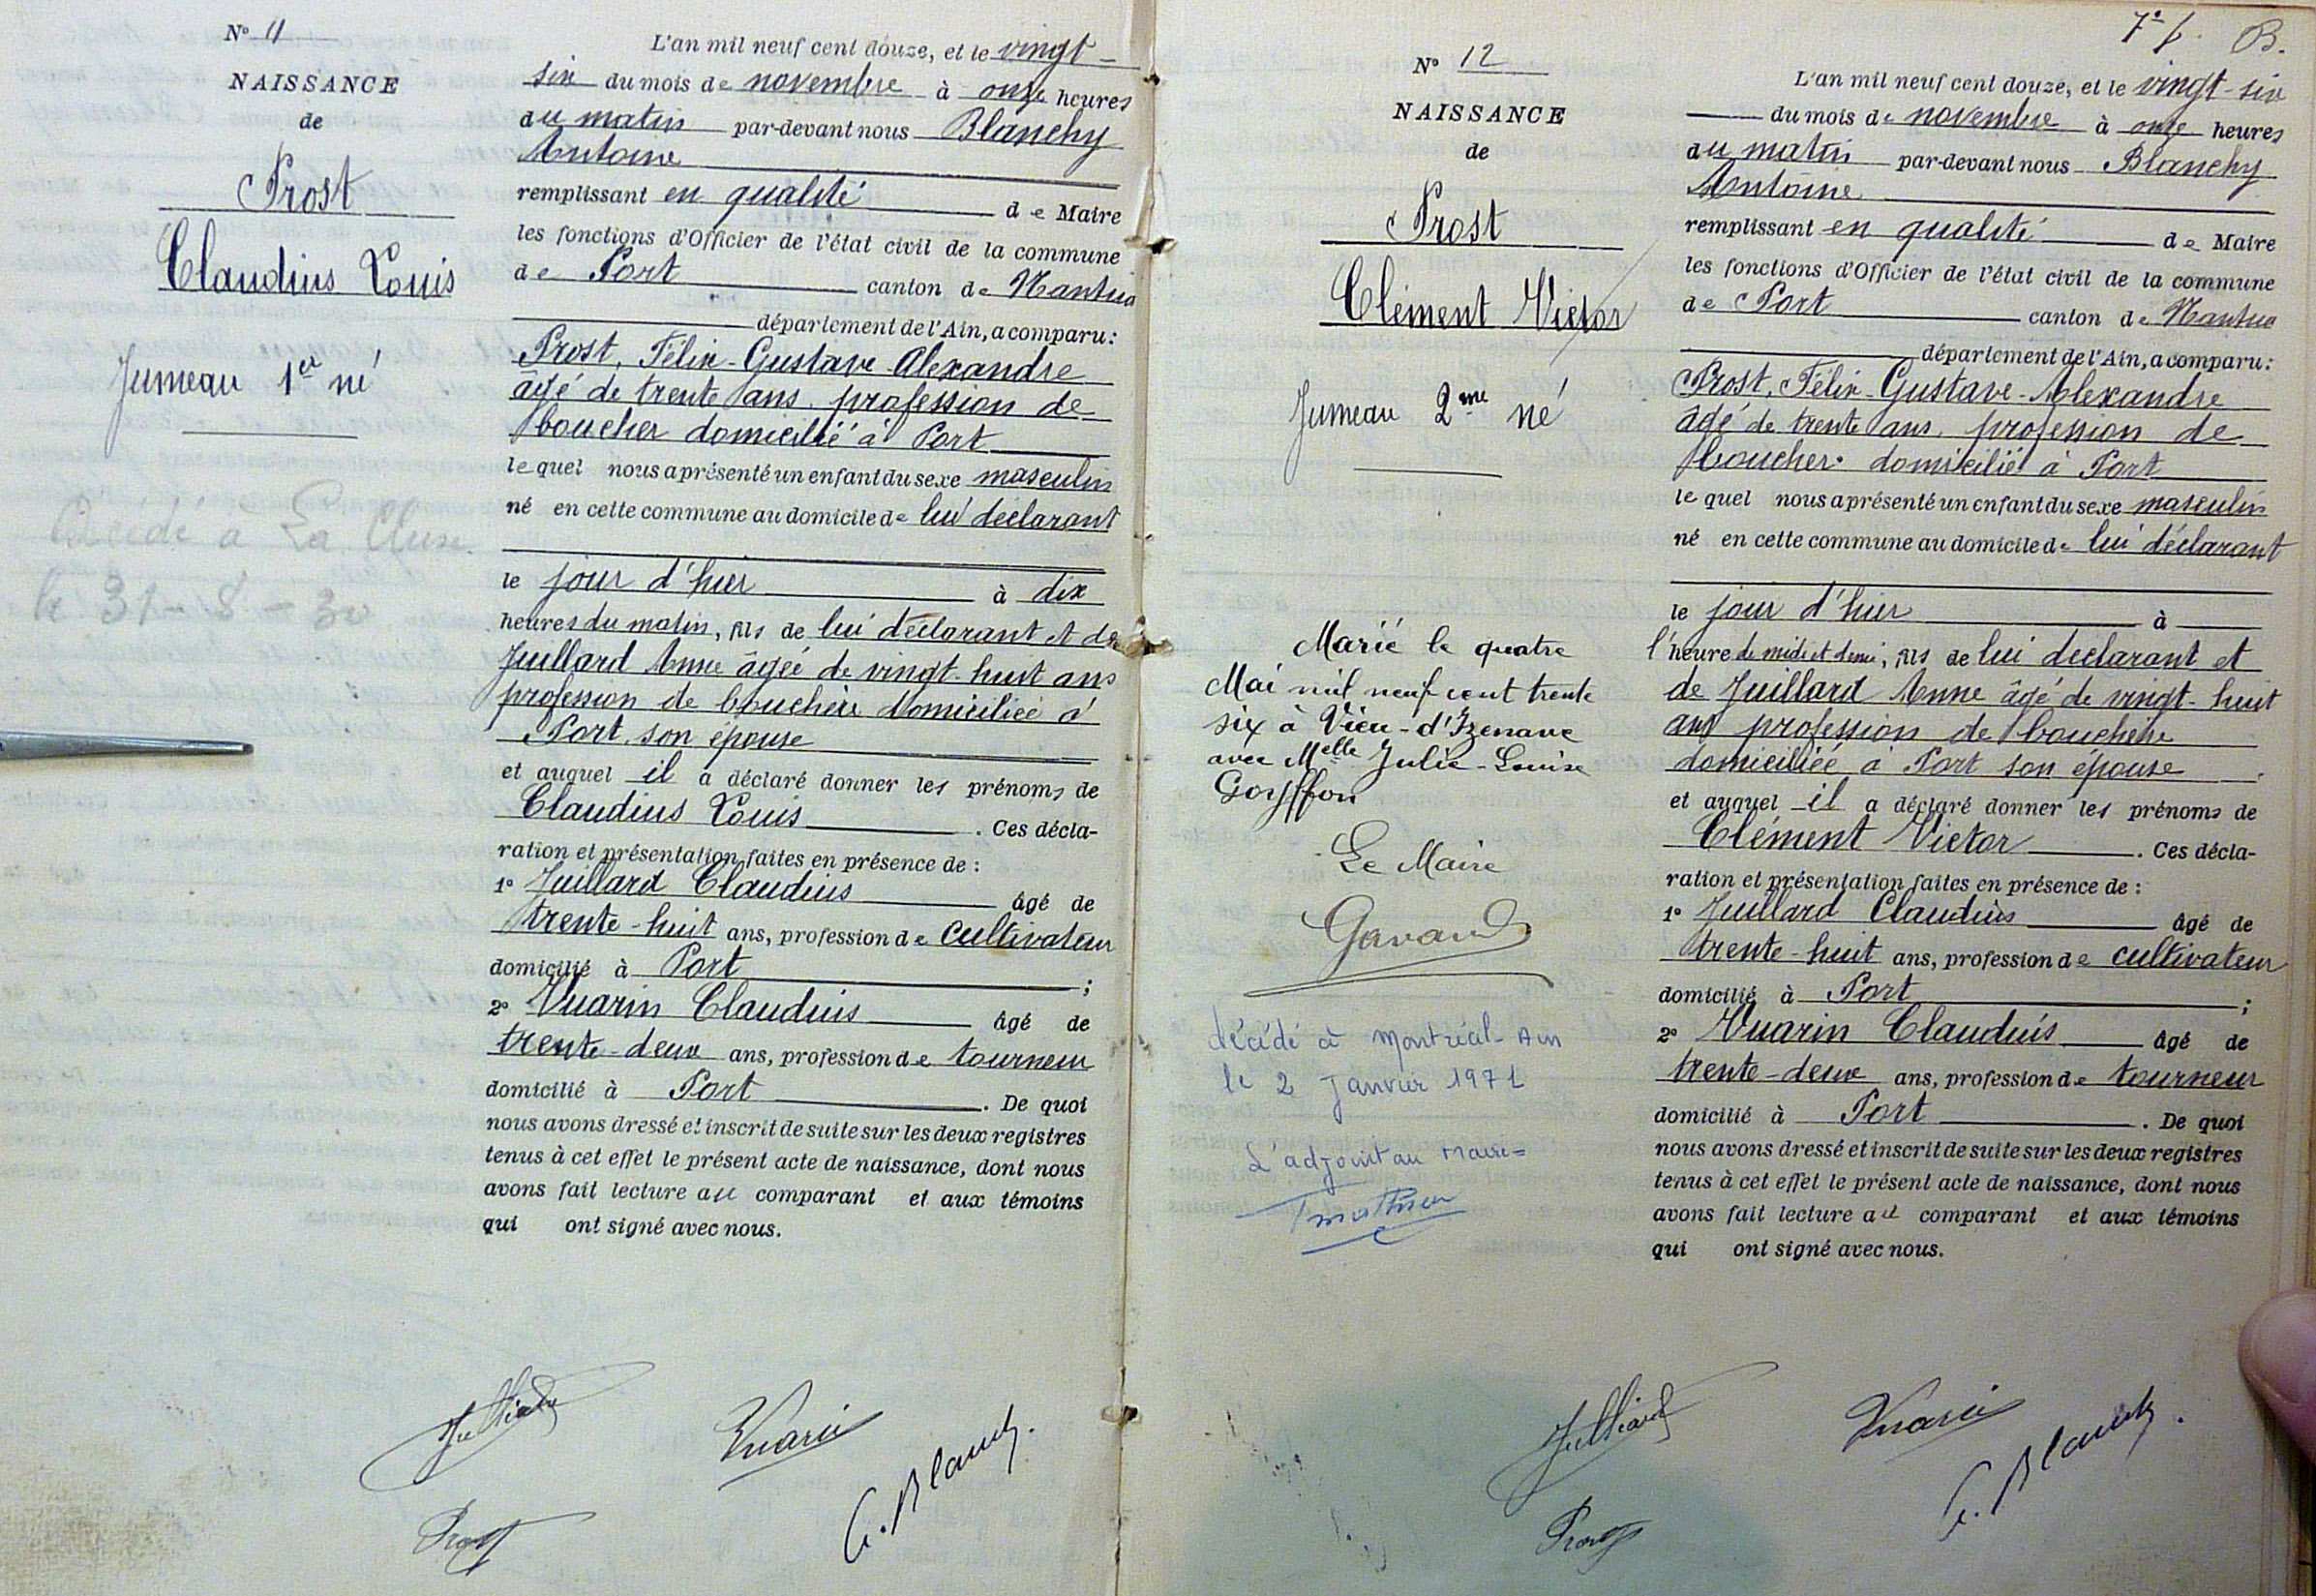 N° 11
NAISSANCE
de
Prost
Claudius Louis
Jumeau 1er né
Décédé à La Cluse
le 31-8-30
L'an mil neuf cent douze, et le vingt-
six du mois de novembre à onze heures
du matin par-devant nous Blanchy
Antoine
remplissant en qualité de Maire
les fonctions d'Officier de l'état civil de la commune
de Port canton de Nantua
département de l'Ain, a comparu:
Prost, Félix-Gustave Alexandre
âgé de trente ans, profession de
boucher domicilié à Port
lequel nous a présenté un enfant du sexe masculin
né en cette commune au domicile de lui déclarant
le jour d'hier à dix
heures du matin, fils de lui déclarant et de
Juillard Anne âgée de vingt-huit ans
profession de bouchère domiciliée à
Port, son épouse
et auquel il a déclaré donner les prénoms de
Claudius Louis. Ces décla-
ration et présentation faites en présence de :
1° Juillard Claudius âgé de
trente-huit ans, profession de cultivateur
domicilié à Port ;
2° Vuarin Claudius âgé de
trente-deux ans, profession de tourneur
domicilié à Port. De quoi
nous avons dressé et inscrit de suite sur les deux registres
tenus à cet effet le présent acte de naissance, dont nous
avons fait lecture au comparant et aux témoins
qui ont signé avec nous.
Juillard
Vuarin
A. Blanchy.
Prost
7e f. B.
N° 12
NAISSANCE
de
Prost
Clément Victor
Jumeau 2me né
Marié le quatre
Mai mil neuf cent trente
six à Vieu-d'Izenave
avec Melle Julie-Louise
Goyffon
Le Maire
Gavand
décédé à Montréal-Ain
le 2 Janvier 1971
L'adjoint au Maire=
L'an mil neuf cent douze, et le vingt-six
du mois de novembre à onze heures
du matin par-devant nous Blanchy
Antoine
remplissant en qualité de Maire
les fonctions d'Officier de l'état civil de la commune
de Port canton de Nantua
département de l'Ain, a comparu:
Prost, Félix-Gustave-Alexandre
âgé de trente ans, profession de
boucher domicilié à Port
lequel nous a présenté un enfant du sexe masculin
né en cette commune au domicile de lui déclarant
le jour d'hier à
l'heure de midi et demi, fils de lui déclarant et
de Juillard Anne âgé de vingt-huit
ans profession de bouchère
domiciliée à Port son épouse
et auquel il a déclaré donner les prénoms de
Clément Victor. Ces décla-
ration et présentation faites en présence de :
1° Juillard Claudius âgé de
trente-huit ans, profession de cultivateur
domicilié à Port ;
2° Vuarin Claudius âgé de
trente-deux ans, profession de tourneur
domicilié à Port. De quoi
nous avons dressé et inscrit de suite sur les deux registres
tenus à cet effet le présent acte de naissance, dont nous
avons fait lecture au comparant et aux témoins
qui ont signé avec nous.
Juillard
Vuarin
A. Blanchy.
Prost